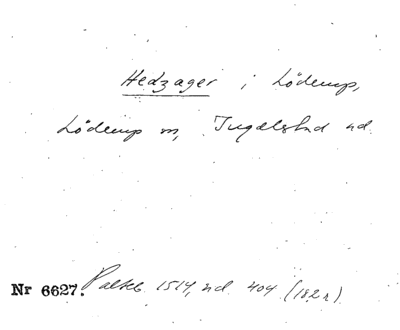 Hedzager i Löderup,
Löderup sn, Ingelstad hd.
Nr 6627. Palteb. 1514, sid. 404 (182 r)